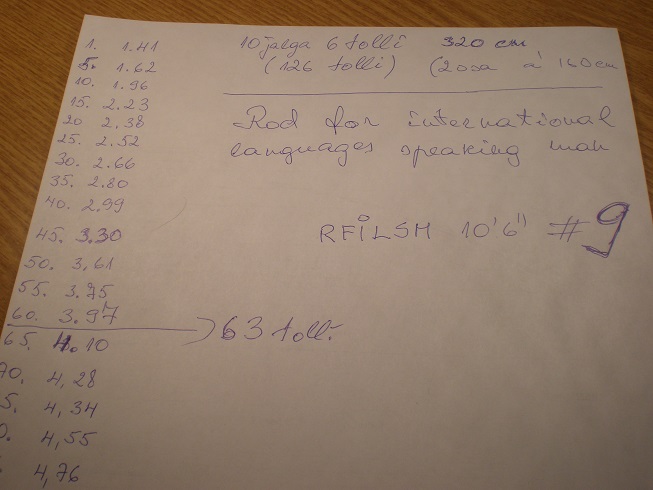 10 jalga 6 tolli 320 cm
(126 tolli) (2 osa a' 160 cm
Rod for international
languages speaking man
RFILSM 10'6" #9
1. 1.41
5. 1.62
10. 1.96
15. 2.23
20 2.38
25. 2.52
30. 2.66
35. 2.80
40. 2.99
45. 3.30
50. 3,61
55. 3.75
60. 3.97
63 tolli
65. 4.10
70. 4,28
5. 4,34
0. 4,55
4,76